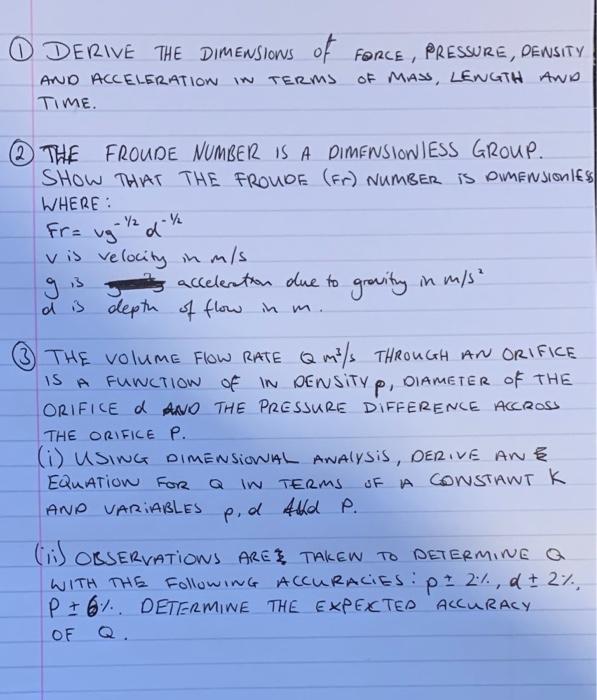 ① DERIVE THE DIMENSIONS of FORCE, PRESSURE, DENSITY
AND ACCELERATION IN TERMS OF MASS, LENGTH AND
TIME.
② THE FROUDE NUMBER IS A DIMENSIONLESS GROUP.
SHOW THAT THE FROUDE (Fr) NUMBER IS DIMENSIONLES
WHERE:
Fr= vg^-1/2 d^-1/2
v is velocity in m/s
g is acceleration due to gravity in m/s²
d is depth of flow in m.
③ THE VOLUME FLOW RATE Q m³/s THROUGH AN ORIFICE
IS A FUNCTION OF IN DENSITY ρ, DIAMETER OF THE
ORIFICE d AND THE PRESSURE DIFFERENCE ACCROSS
THE ORIFICE P.
(i) USING DIMENSIONAL ANALYSIS, DERIVE AN
EQUATION FOR Q IN TERMS OF A CONSTANT K
AND VARIABLES ρ, d AND P.
(ii) OBSERVATIONS ARE TAKEN TO DETERMINE Q
WITH THE FOLLOWING ACCURACIES: ρ ± 2%, d ± 2%,
P ± 6%. DETERMINE THE EXPECTED ACCURACY
OF Q.